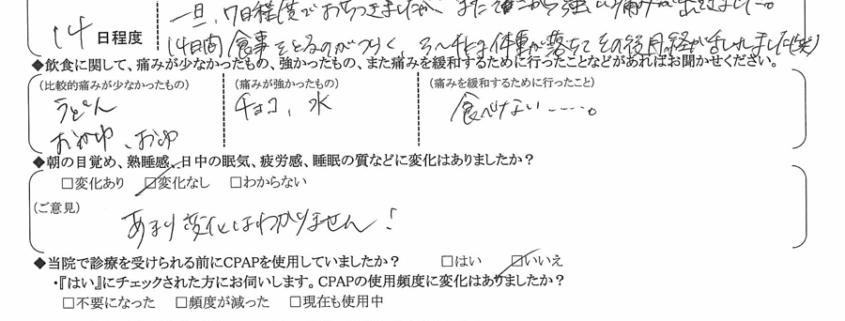 一旦、7日程度でおちつきましたが、また そこから強い痛みが出ました。
14日程度
14日間食事をとるのがつらく、そのまま体重が落ちてその後月経がまいれました(笑)
◆飲食に関して、痛みが少なかったもの、強かったもの、また痛みを緩和するために行ったことなどがあればお聞かせください。
(比較的痛みが少なかったもの) (痛みが強かったもの) (痛みを緩和するために行ったこと)
うどん チョコ、水 食べない……。
おかゆ、おゆ
◆朝の目覚め、熟睡感、日中の眠気、疲労感、睡眠の質などに変化はありましたか?
□変化あり ☑変化なし □わからない
(ご意見)
あまり変化はわかりません!
◆当院で診療を受けられる前にCPAPを使用していましたか? □はい ☑いいえ
・『はい』にチェックされた方にお伺いします。CPAPの使用頻度に変化はありましたか?
□不要になった □頻度が減った □現在も使用中